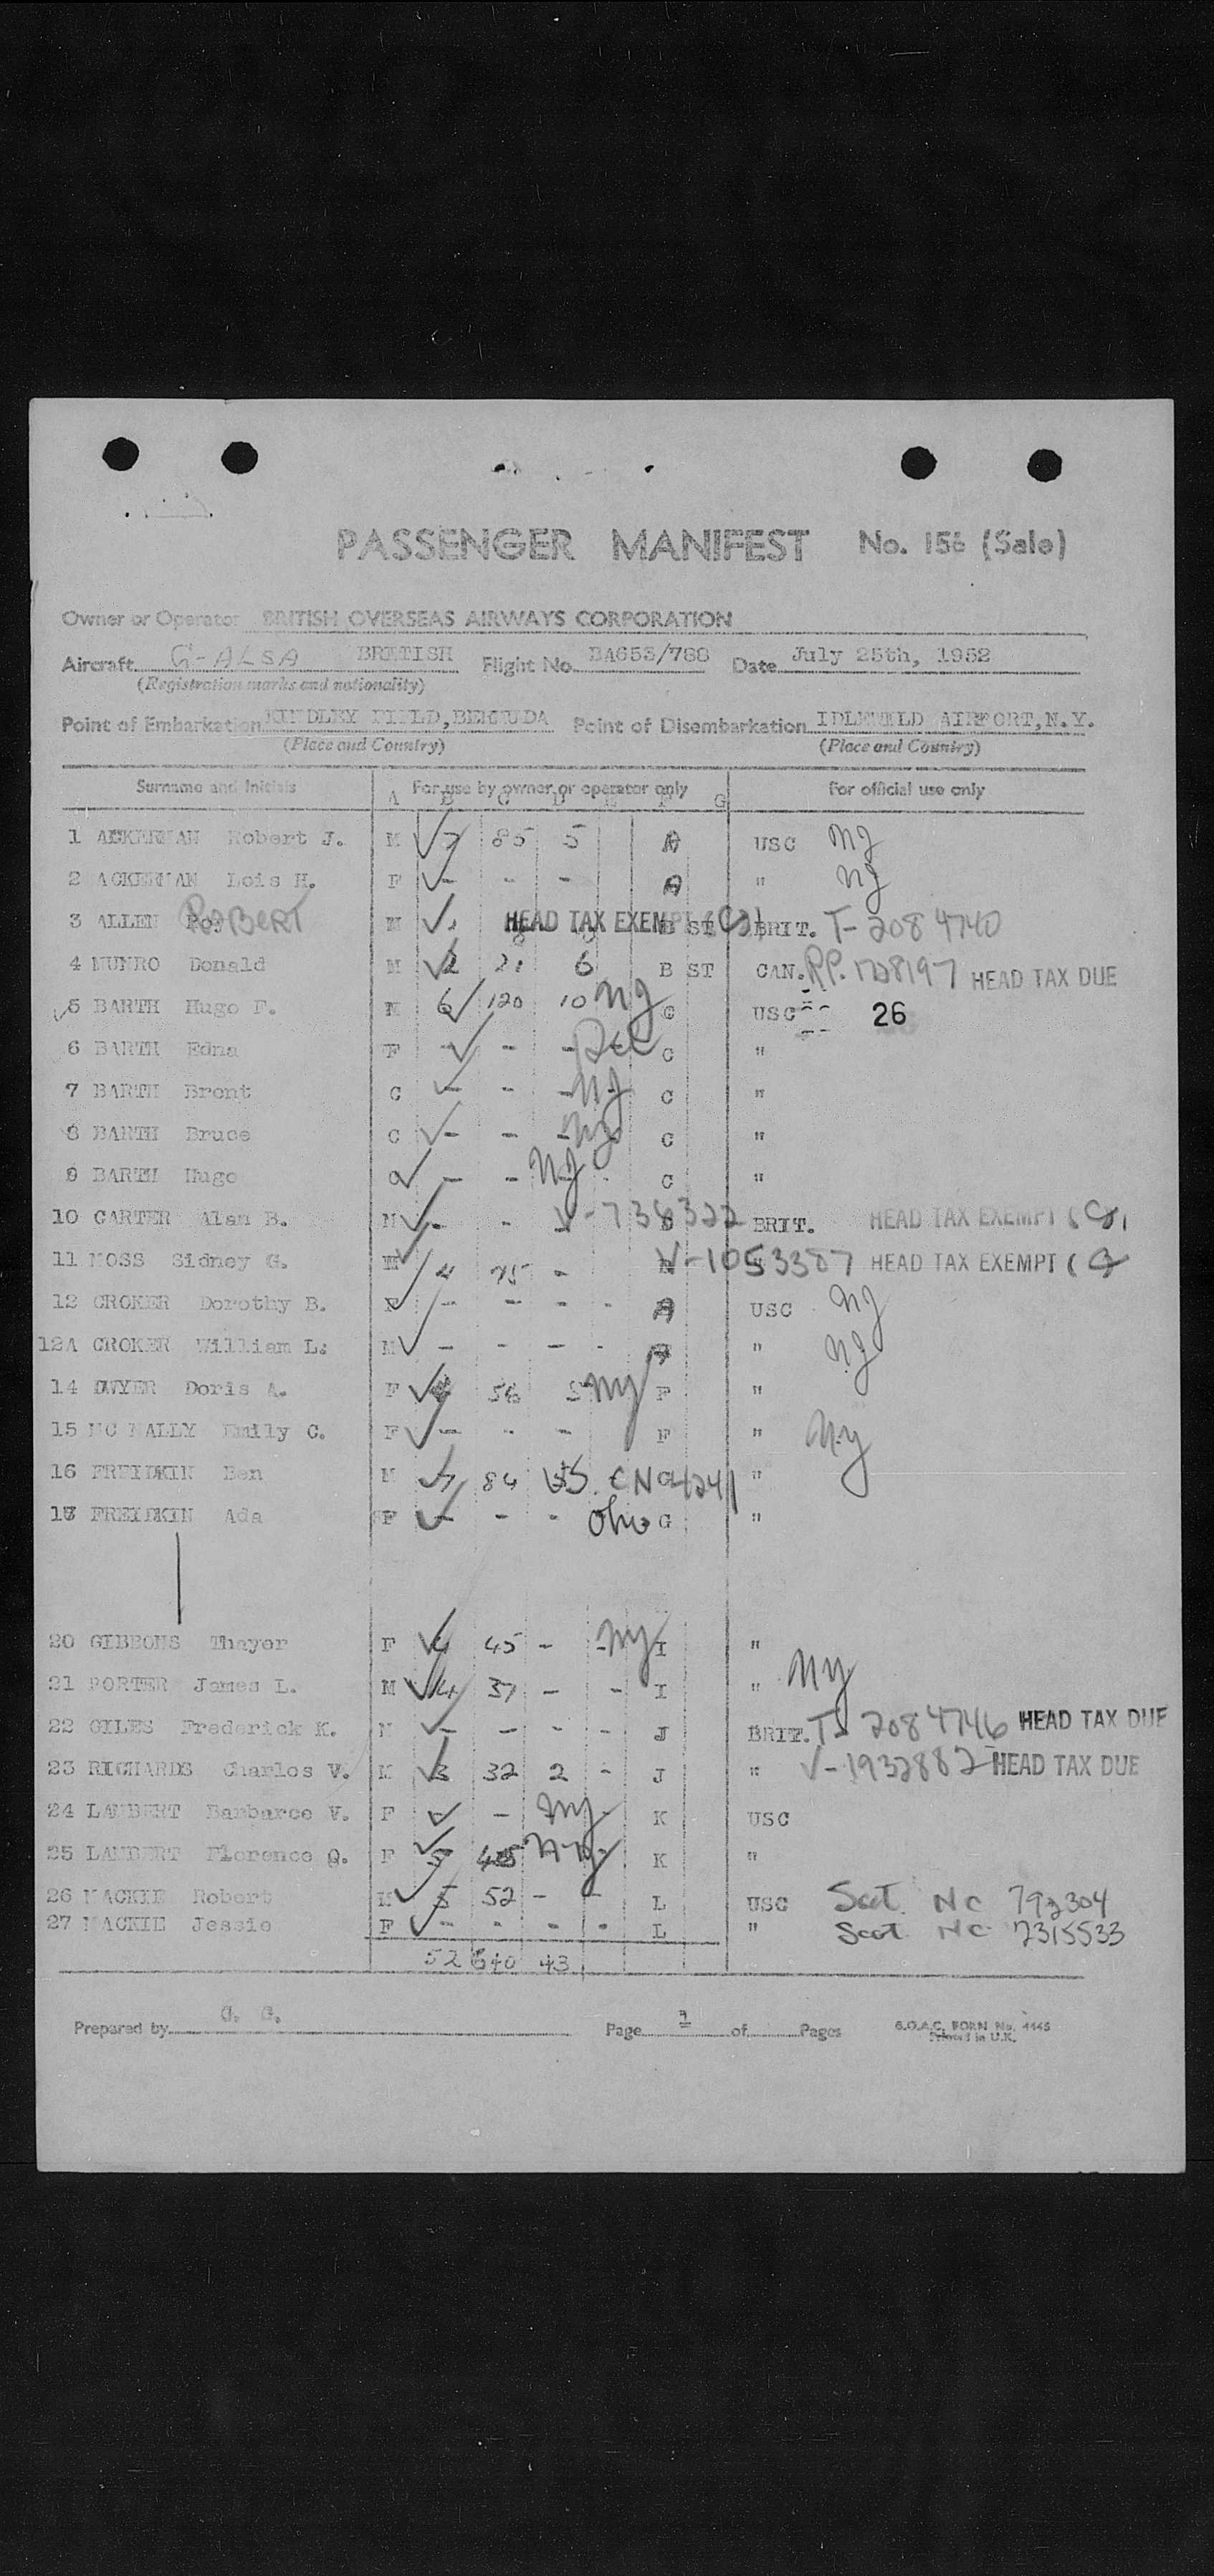 PASSENGER MANIFEST No. 156 (Sale)
Owner or Operator BRITISH OVERSEAS AIRWAYS CORPORATION
Aircraft G-ALSA BRITISH Flight No. BA653/788 Date July 25th, 1952
(Registration marks and nationality)
Point of Embarkation KINDLEY FIELD, BERMUDA Point of Disembarkation IDLEWILD AIRPORT, N.Y.
(Place and Country) (Place and Country)
Surname and Initials For use by owner or operator only For official use only
A B C D E F G
1 ACKERMAN Robert J. M 7 85 5 A USC NJ
2 ACKERMAN Lois H. F - - - A " NJ
3 ALLEN Roy ROBERT M HEAD TAX EXEMPT B ST BRIT. T-2084740
4 MUNRO Donald M 2 21 6 B ST CAN. PP. HEAD TAX DUE
5 BARTH Hugo F. M 6 120 10 NJ C USC 26
6 BARTH Edna F - - - C "
7 BARTH Bront C - - - NJ C "
8 BARTH Bruce C - - - NJ C "
9 BARTH Hugo C - - NJ C "
10 CARTER Alan B. M - - V-736322 BRIT. HEAD TAX EXEMPT (
11 MOSS Sidney G. M 4 75 - V-1053387 " HEAD TAX EXEMPT (
12 CROKER Dorothy B. F - - - - A USC NJ
12A CROKER William L. M - - - - A " NJ
14 DWYER Doris A. F 56 5 NY F "
15 MC NALLY Emily C. F - - - F " N.Y
16 FREIDKIN Ben M 7 84 US. CNa4241 "
17 FREIDKIN Ada F - - - Ohio G "
20 GIBBONS Thayer F 4 45 - - NY I "
21 PORTER James L. M 4 37 - - I " NY
22 GILES Frederick K. M - - - - J BRIT. T- 2084746 HEAD TAX DUE
23 RICHARDS Charles V. M 3 32 2 - J " V-1932882 HEAD TAX DUE
24 LAMBERT Barbaree V. F - - NY - K USC
25 LAMBERT Florence Q. F 5 NY K "
26 MACKIE Robert M 5 52 - - L USC Scot. Nc 792304
27 MACKIE Jessie F - - - - L " Scot Nc 7315533
52 640 43
Prepared by G. G. Page 1 of Pages B.O.A.C. FORM No. 4445
Printed in U.K.